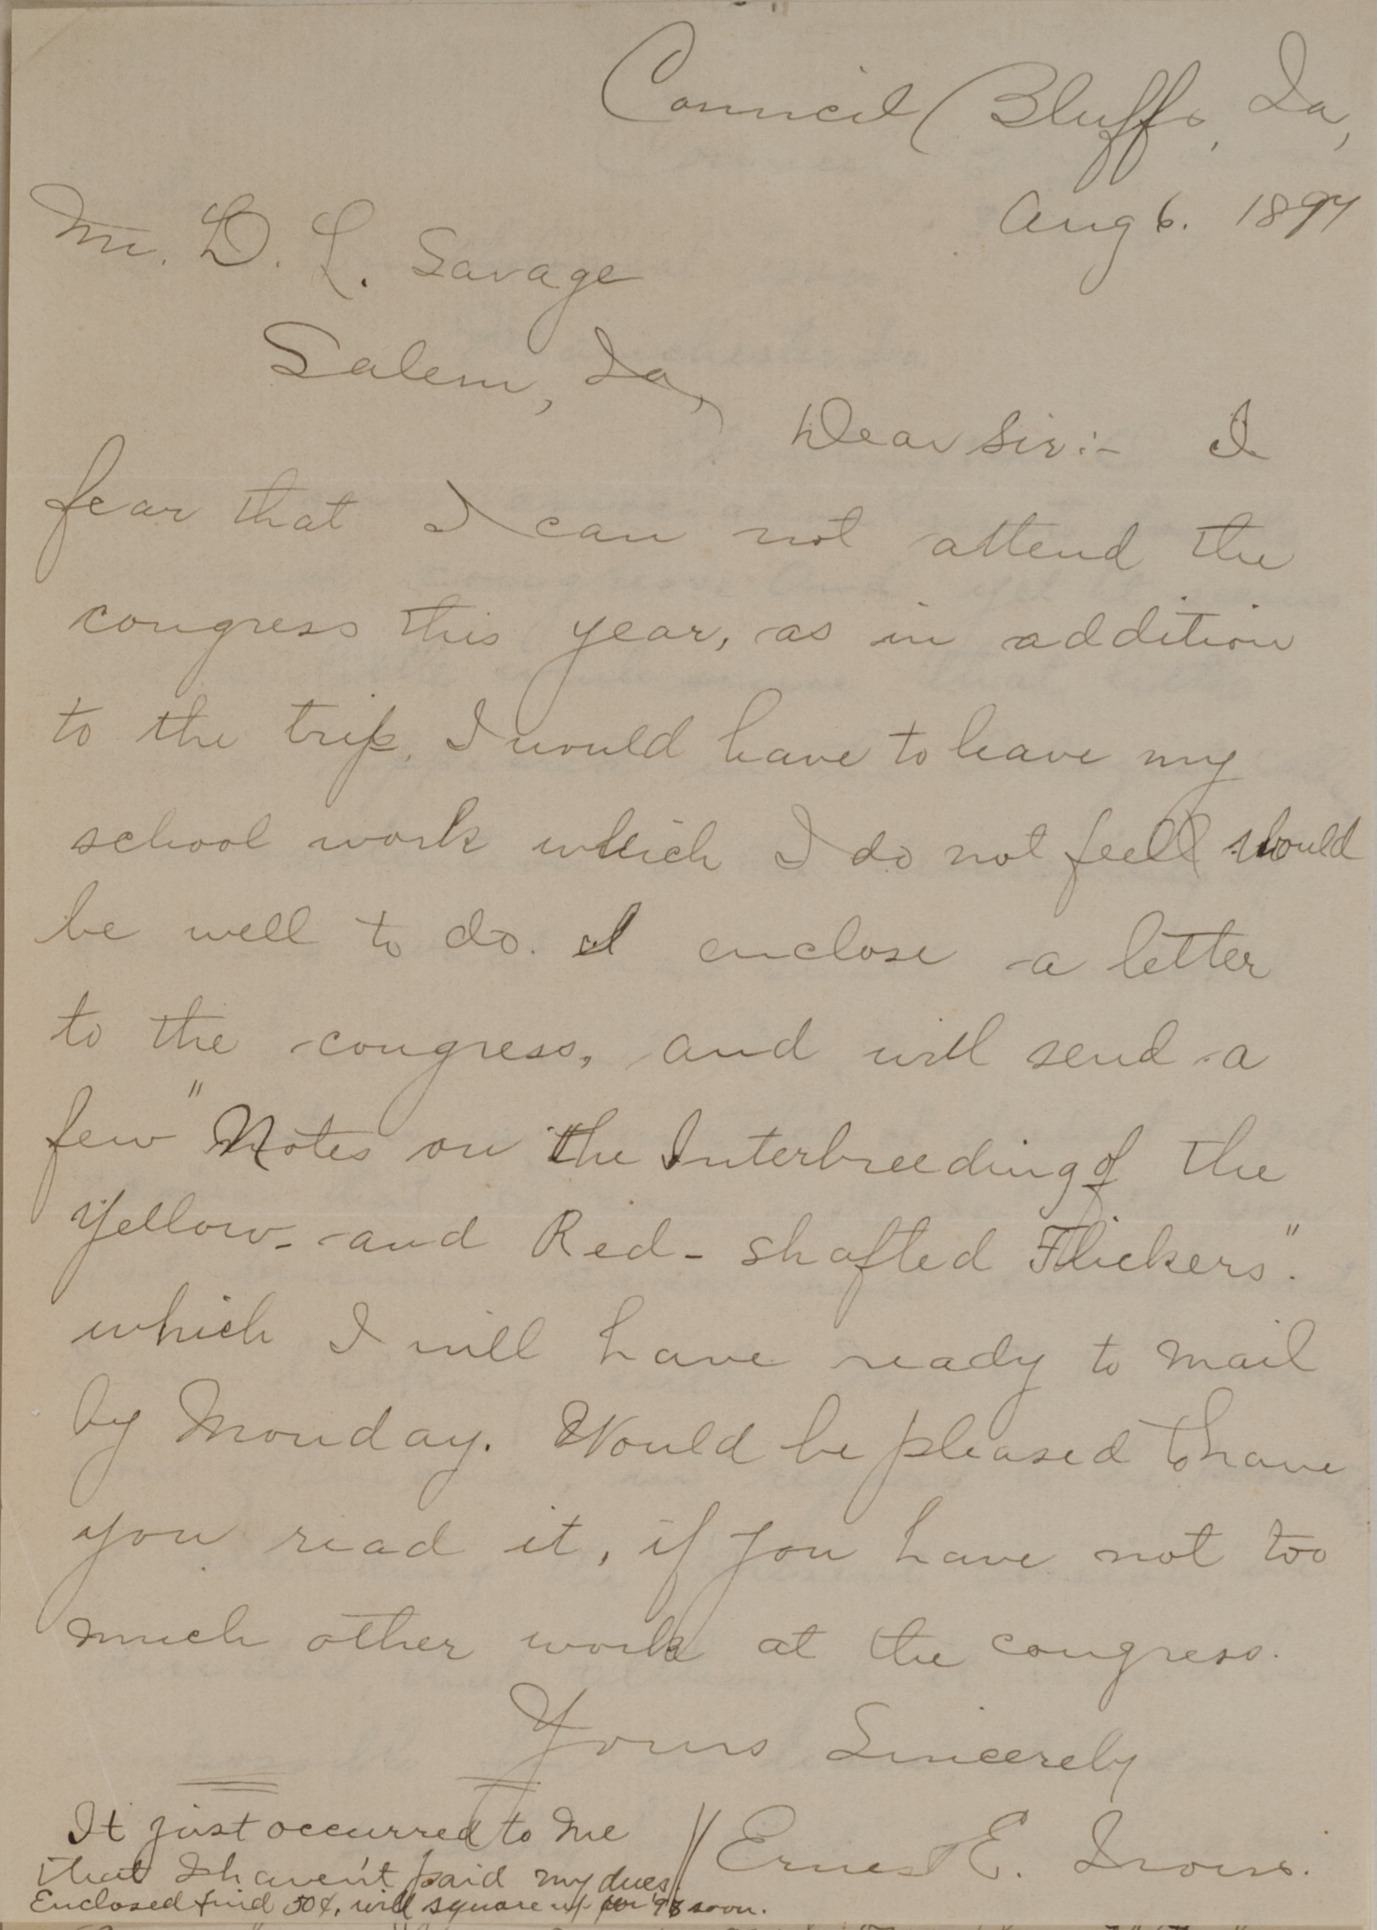 Council Bluffs, Ia,
Aug 6. 1897
Mr. D. L. Savage
Salem, Ia,
Dear Sir:- I
fear that I can not attend the
congress this year, as in addition
to the trip, I would have to leave my
school work which I do not feel would
be well to do. I enclose a letter
to the congress, and will send a
few "Notes on the Interbreeding of the
Yellow- and Red-shafted Flickers".
which I will have ready to mail
by Monday. Would be pleased to have
you read it, if you have not too
much other work at the congress.
Yours Sincerely
Ernest E. Irons.
It just occurred to me
that I haven't paid my dues.
Enclosed find 50¢, will square up for '98 soon.